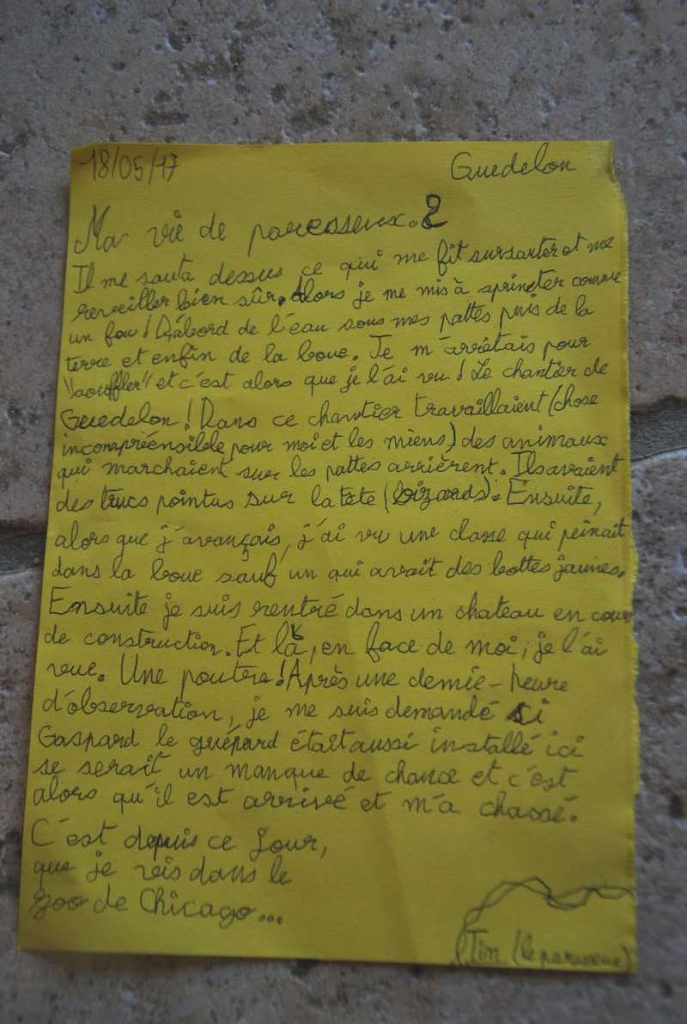 18/05/17 Guedelon
Ma vie de paresseux.2
Il me sauta dessus ce qui me fit sursauter et me
reveiller bien sûr. Alors je me mis à sprinter comme
un fou! D'abord de l'eau sous mes pattes puis de la
terre et enfin de la boue. Je m'arrêtais pour
"souffler" et c'est alors que je l'ai vu! Le chantier de
Guedelon! Dans ce chantier travaillaient (chose
incompréensible pour moi et les miens) des animaux
qui marchaient sur les pattes arrièrent. Ils avaient
des trucs pointus sur la tete (bizards). Ensuite,
alors que j'avançais, j'ai vu une classe qui peinait
dans la boue sauf un qui avait des bottes jaunes.
Ensuite je suis rentré dans un chateau en cour
de construction. Et là, en face de moi, je l'ai
vue. Une poutre! Après une demie-heure
d'observation, je me suis demandé si
Gaspard le guépard était aussi installé ici
se serait un manque de chance et c'est
alors qu'il est arrivé et m'a chassé.
C'est depuis ce jour,
que je vis dans le
zoo de Chicago...
Tim (le paresseux)